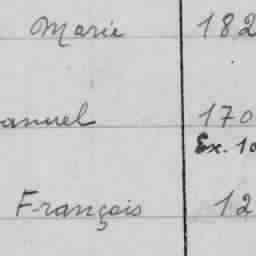 Marie 182
anuel 170
Ex. 10
François 12